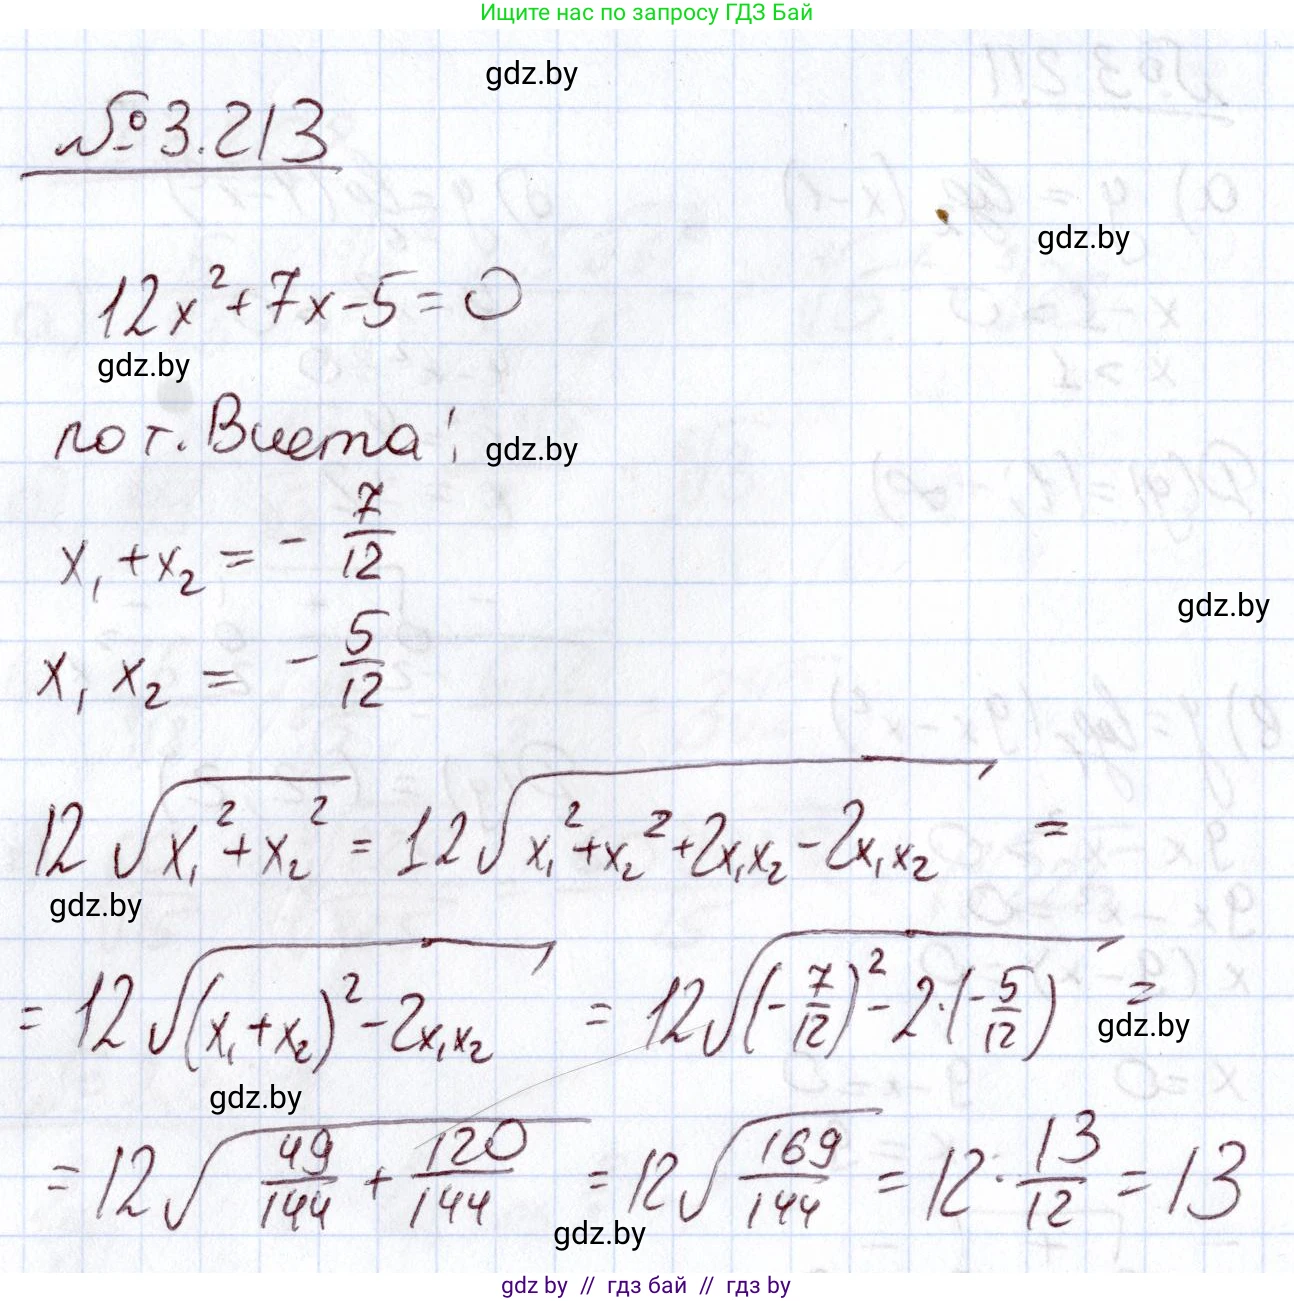 Ищите нас по запросу ГДЗ Бай
gdz.by
№ 3.213
gdz.by
12x² + 7x - 5 = 0
gdz.by
по т. Виета:
gdz.by
x₁ + x₂ = - 7/12
gdz.by
x₁ x₂ = - 5/12
12 √(x₁² + x₂²) = 12 √(x₁² + x₂² + 2x₁x₂ - 2x₁x₂) =
gdz.by
= 12 √((x₁ + x₂)² - 2x₁x₂) = 12 √((-7/12)² - 2·(-5/12)) =
gdz.by
gdz.by
= 12 √(49/144 + 120/144) = 12 √(169/144) = 12 · 13/12 = 13
gdz.by
gdz.by // гдз бай // гдз by